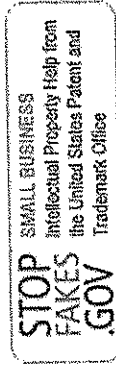 STOP
FAKES
.GOV
SMALL BUSINESS
Intellectual Property Help from
the United States Patent and
Trademark Office